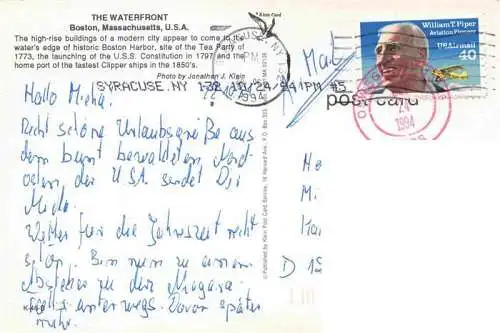 THE WATERFRONT
Boston, Massachusetts, U.S.A.
The high-rise buildings of a modern city appear to come to the
water's edge of historic Boston Harbor, site of the Tea Party of
1773, the launching of U.S.S. Constitution in 1797 and the
home port of the fastest Clipper ships in the 1850's.
Photo by Jonathan J. Klein
Klein Card
SYRACUSE NY 132 10/24/94 1PM #3
post card
William T. Piper
Aviation Pioneer
US Airmail
40
PM
1994
24
1994
Air Mail
Hallo Micha,
Recht schöne Urlaubsgrüße aus
dem bunt bewaldeten Nord-
osten der USA sendet Dir
Wetter für die Jahreszeit recht
schön. Bin nun zu einem
Abstecher zu den Niagara
Falls unterwegs. Davon später
mehr.
©Published by Klein Post Card Service, 18 Harvard Ave., P.O. Box 353
D